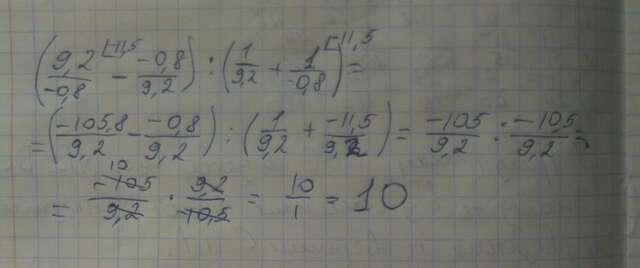 (9,2/-0,8 ⌐-11,5 - -0,8/9,2) : (1/9,2 + 1/-0,8 ⌐-11,5) =
= (-105,8/9,2 - -0,8/9,2) : (1/9,2 + -11,5/9,2) = -105/9,2 : -10,5/9,2 =
= -105/9,2 10 · 9,2/10,5 = 10/1 = 10